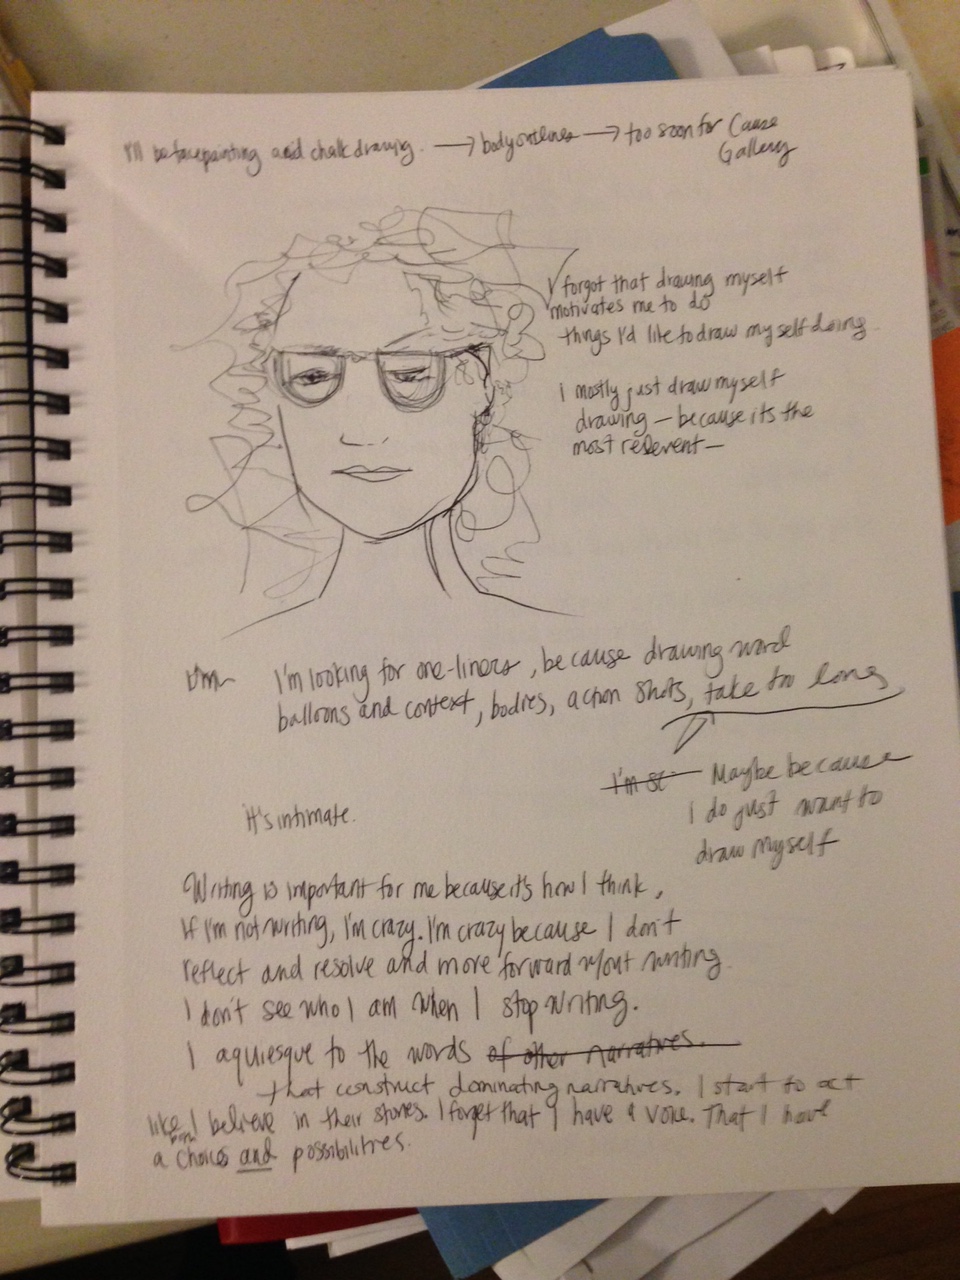 I'll be facepainting and chalk drawing. → body outlines → too soon for Cause
Gallery
I forgot that drawing myself
motivates me to do
things I'd like to draw myself doing.
I mostly just draw myself
drawing — because its the
most relevent —
I'm looking for one-liners, because drawing word
balloons and context, bodies, action shots, take too long
I'm st Maybe because
I do just want to
draw myself
it's intimate.
Writing is important for me because it's how I think,
If I'm not writing, I'm crazy. I'm crazy because I don't
reflect and resolve and move forward w/out writing.
I don't see who I am when I stop writing.
I aquiesque to the words of other narratives.
that construct dominating narratives. I start to act
like I believe in their stories. I forget that I have a voice. That I have
a choices and possibilities.